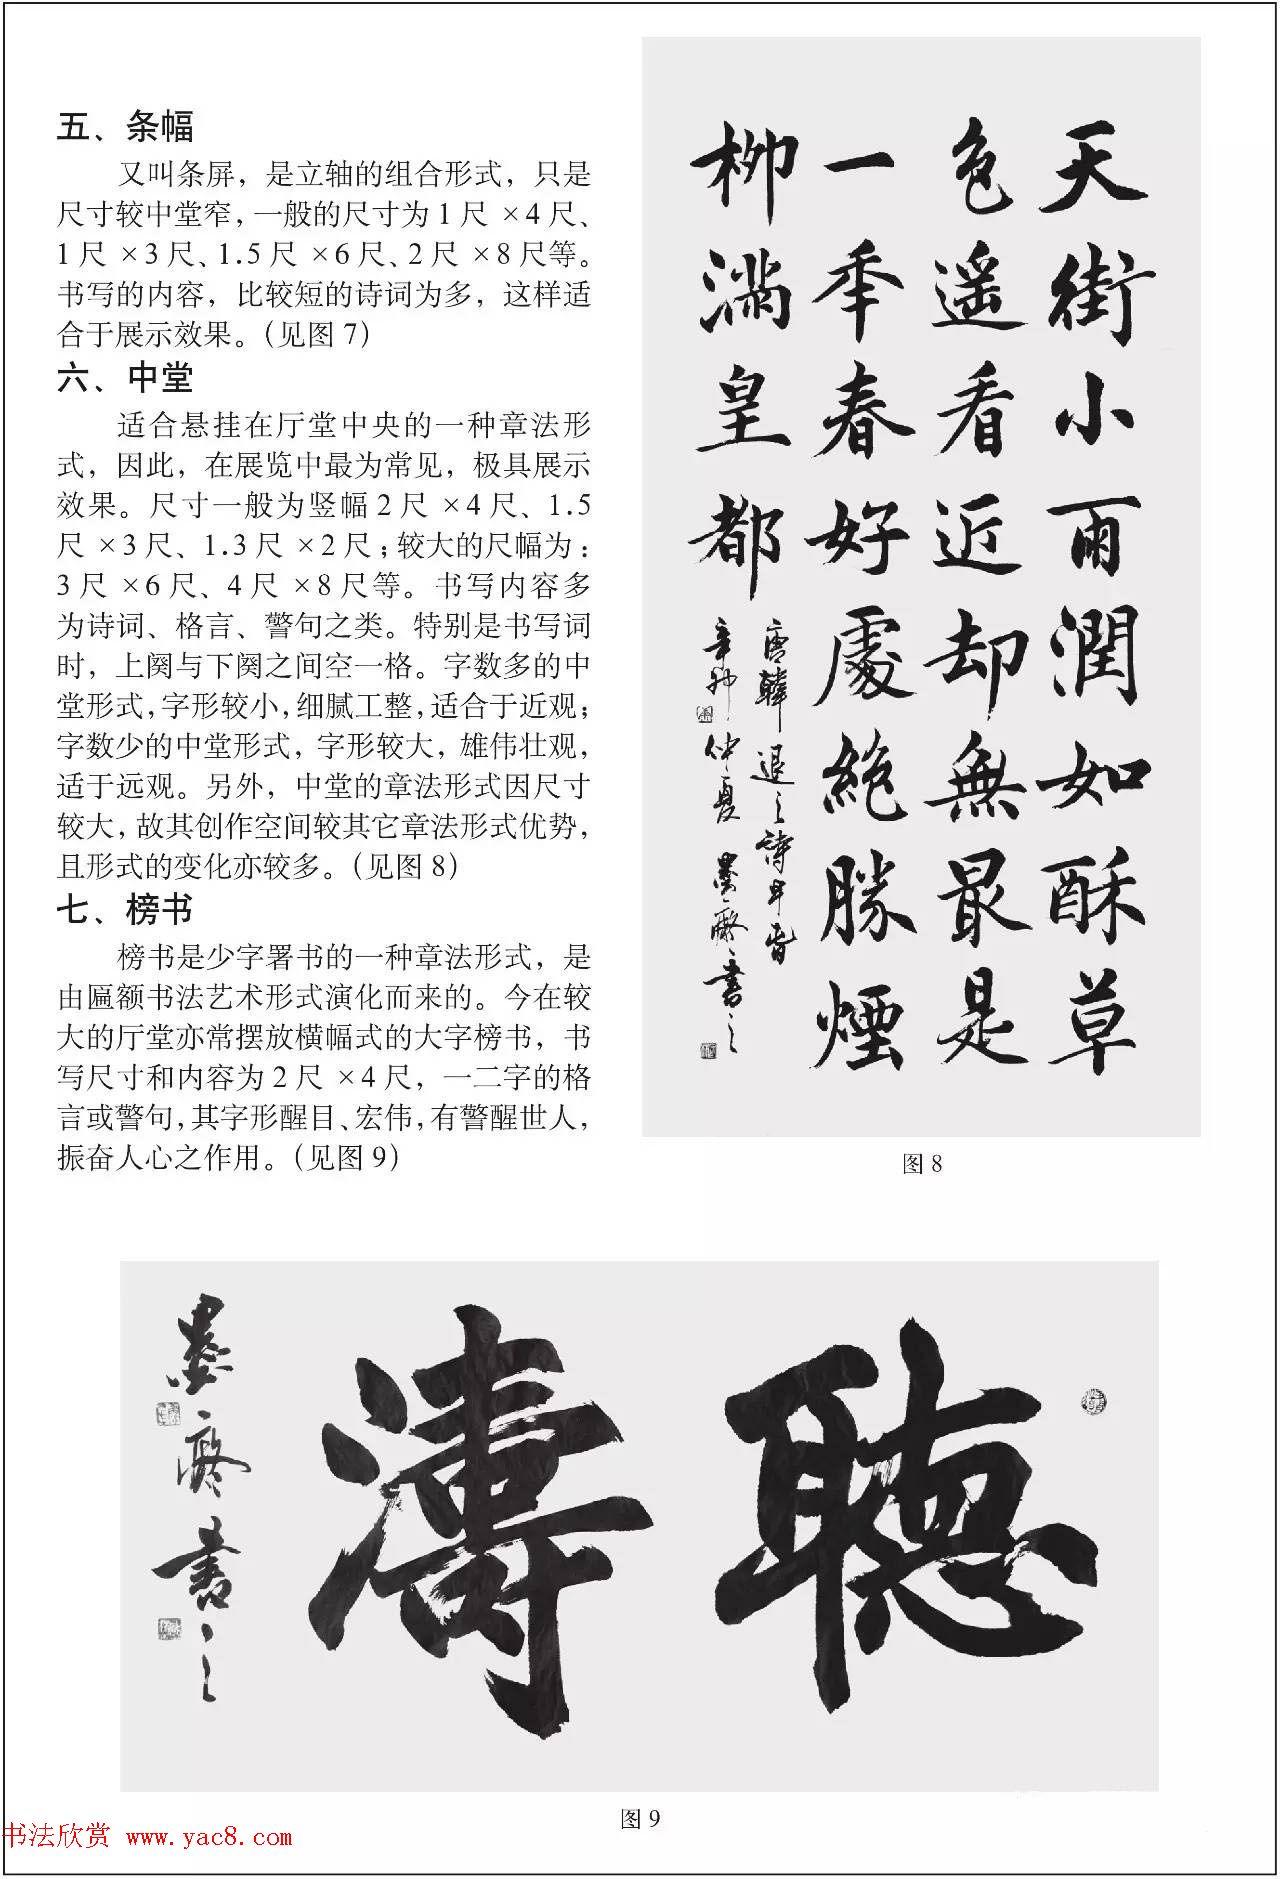 五、条幅
又叫条屏，是立轴的组合形式，只是
尺寸较中堂窄，一般的尺寸为1尺×4尺、
1尺×3尺、1.5尺×6尺、2尺×8尺等。
书写的内容，比较短的诗词为多，这样适
合于展示效果。（见图7）
六、中堂
适合悬挂在厅堂中央的一种章法形
式，因此，在展览中最为常见，极具展示
效果。尺寸一般为竖幅2尺×4尺、1.5
尺×3尺、1.3尺×2尺；较大的尺幅为：
3尺×6尺、4尺×8尺等。书写内容多
为诗词、格言、警句之类。特别是书写词
时，上阕与下阕之间空一格。字数多的中
堂形式，字形较小，细腻工整，适合于近观；
字数少的中堂形式，字形较大，雄伟壮观，
适于远观。另外，中堂的章法形式因尺寸
较大，故其创作空间较其它章法形式优势，
且形式的变化亦较多。（见图8）
七、榜书
榜书是少字署书的一种章法形式，是
由匾额书法艺术形式演化而来的。今在较
大的厅堂亦常摆放横幅式的大字榜书，书
写尺寸和内容为2尺×4尺，一二字的格
言或警句，其字形醒目、宏伟，有警醒世人，
振奋人心之作用。（见图9）
天街小雨潤如酥草
色遥看近却無最是
一季春好處絶勝煙
柳滿皇都
唐韓退之詩早春
辛卯仲夏墨癡書之
图8
聽濤
墨癡書之
图9
书法欣赏 www.yac8.com